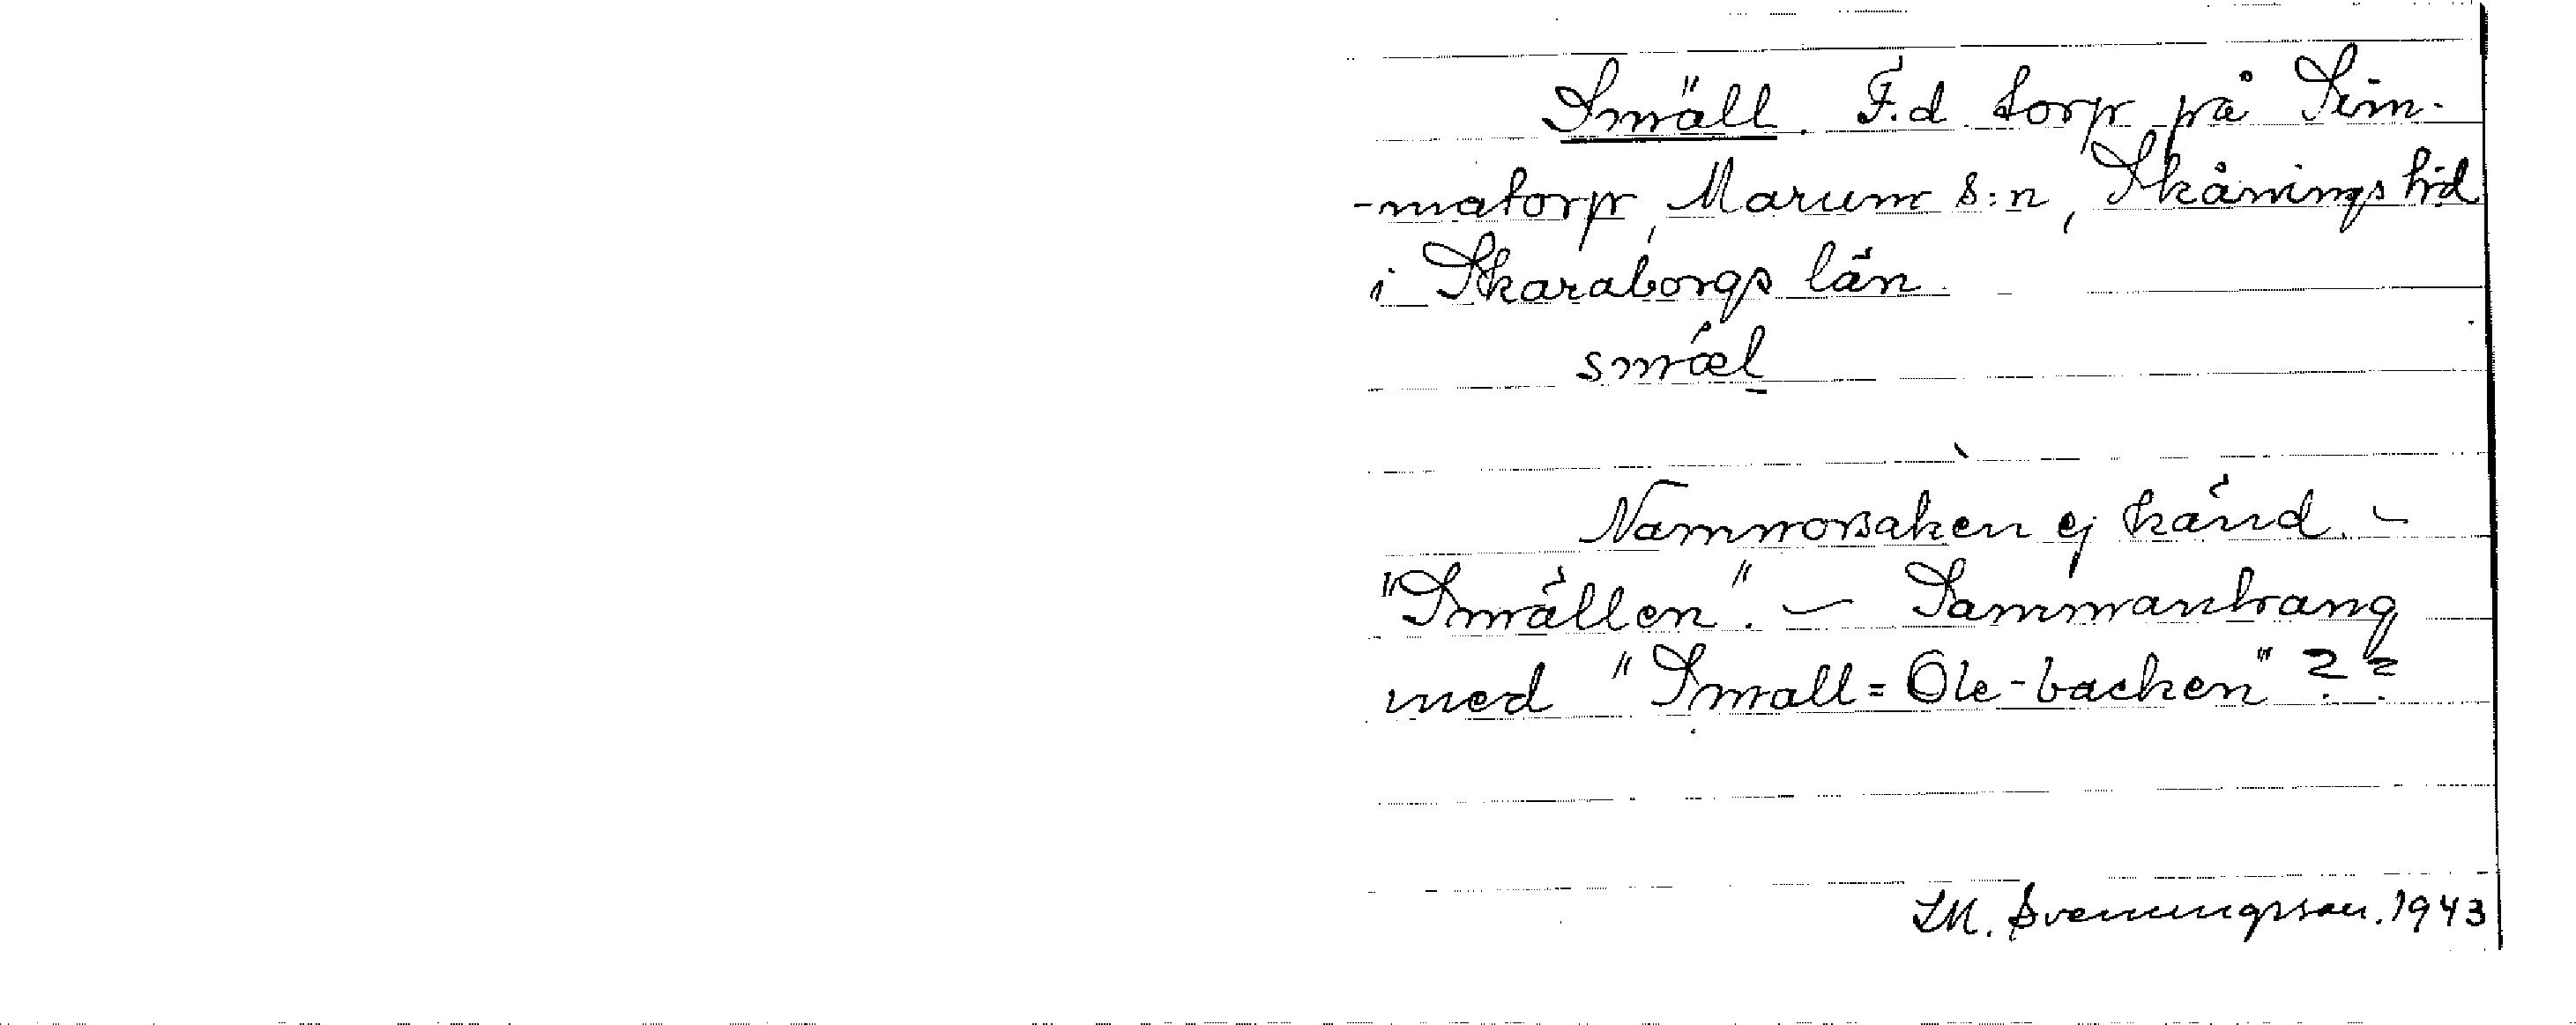 Smäll. F.d torp på Sim-
-matorp, Marum s:n, Skånings hd
i Skaraborgs län.
smæl
Namnorsaken ej känd. –
"Smällen". – Sammanhang
med "Small=Ole-backen" ??
Svenningsson. 1943